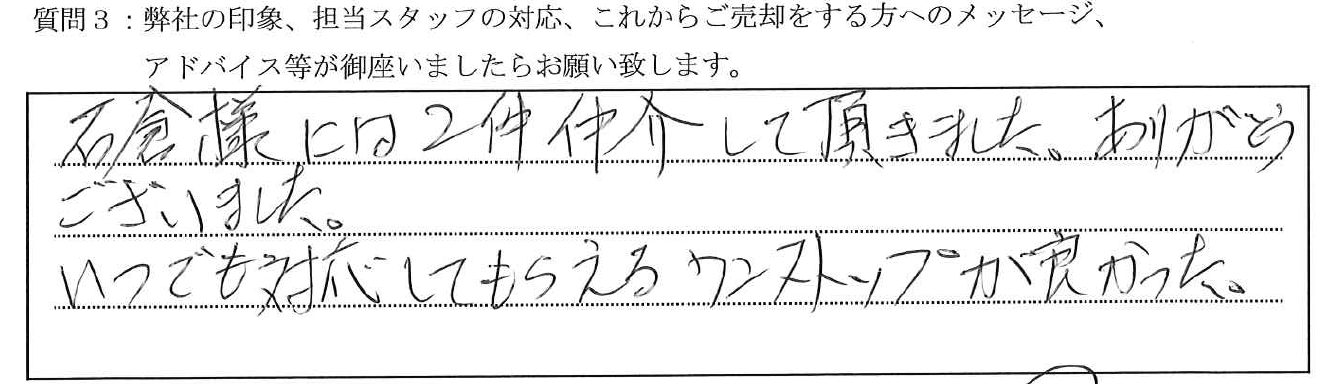 質問3：弊社の印象、担当スタッフの対応、これからご売却をする方へのメッセージ、
アドバイス等が御座いましたらお願い致します。
石倉様には2件仲介して頂きました。ありがとう
ございました。
いつでも対応してもらえるワンストップが良かった。